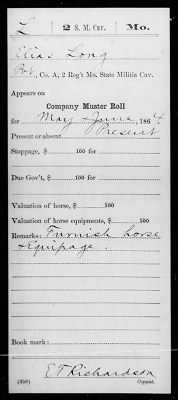 L | 2 S. M. Cav. | Mo.
Elias Long
Pvt, Co. A, 2 Reg't Mo. State Militia Cav.
Appears on
Company Muster Roll
for May & June, 1864
Present or absent Present
Stoppage, $ 100 for
Due Gov't, $ 100 for
Valuation of horse, $ 100
Valuation of horse equipments, $ 100
Remarks: Furnish horse
& Equipage.
Book mark:
E T Richardson
(358) Copyist.